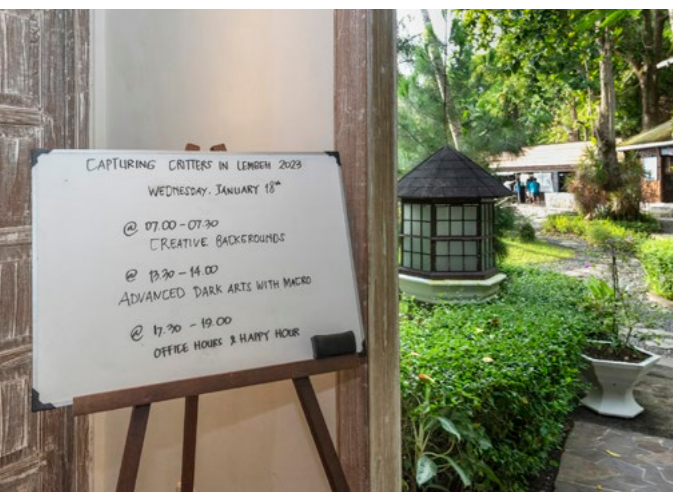 CAPTURING CRITTERS IN LEMBEH 2023
WEDNESDAY, JANUARY 18th
@ 07.00 - 07.30
CREATIVE BACKGROUNDS
@ 13.30 - 14.00
ADVANCED DARK ARTS WITH MACRO
@ 17.30 - 19.00
OFFICE HOURS & HAPPY HOUR